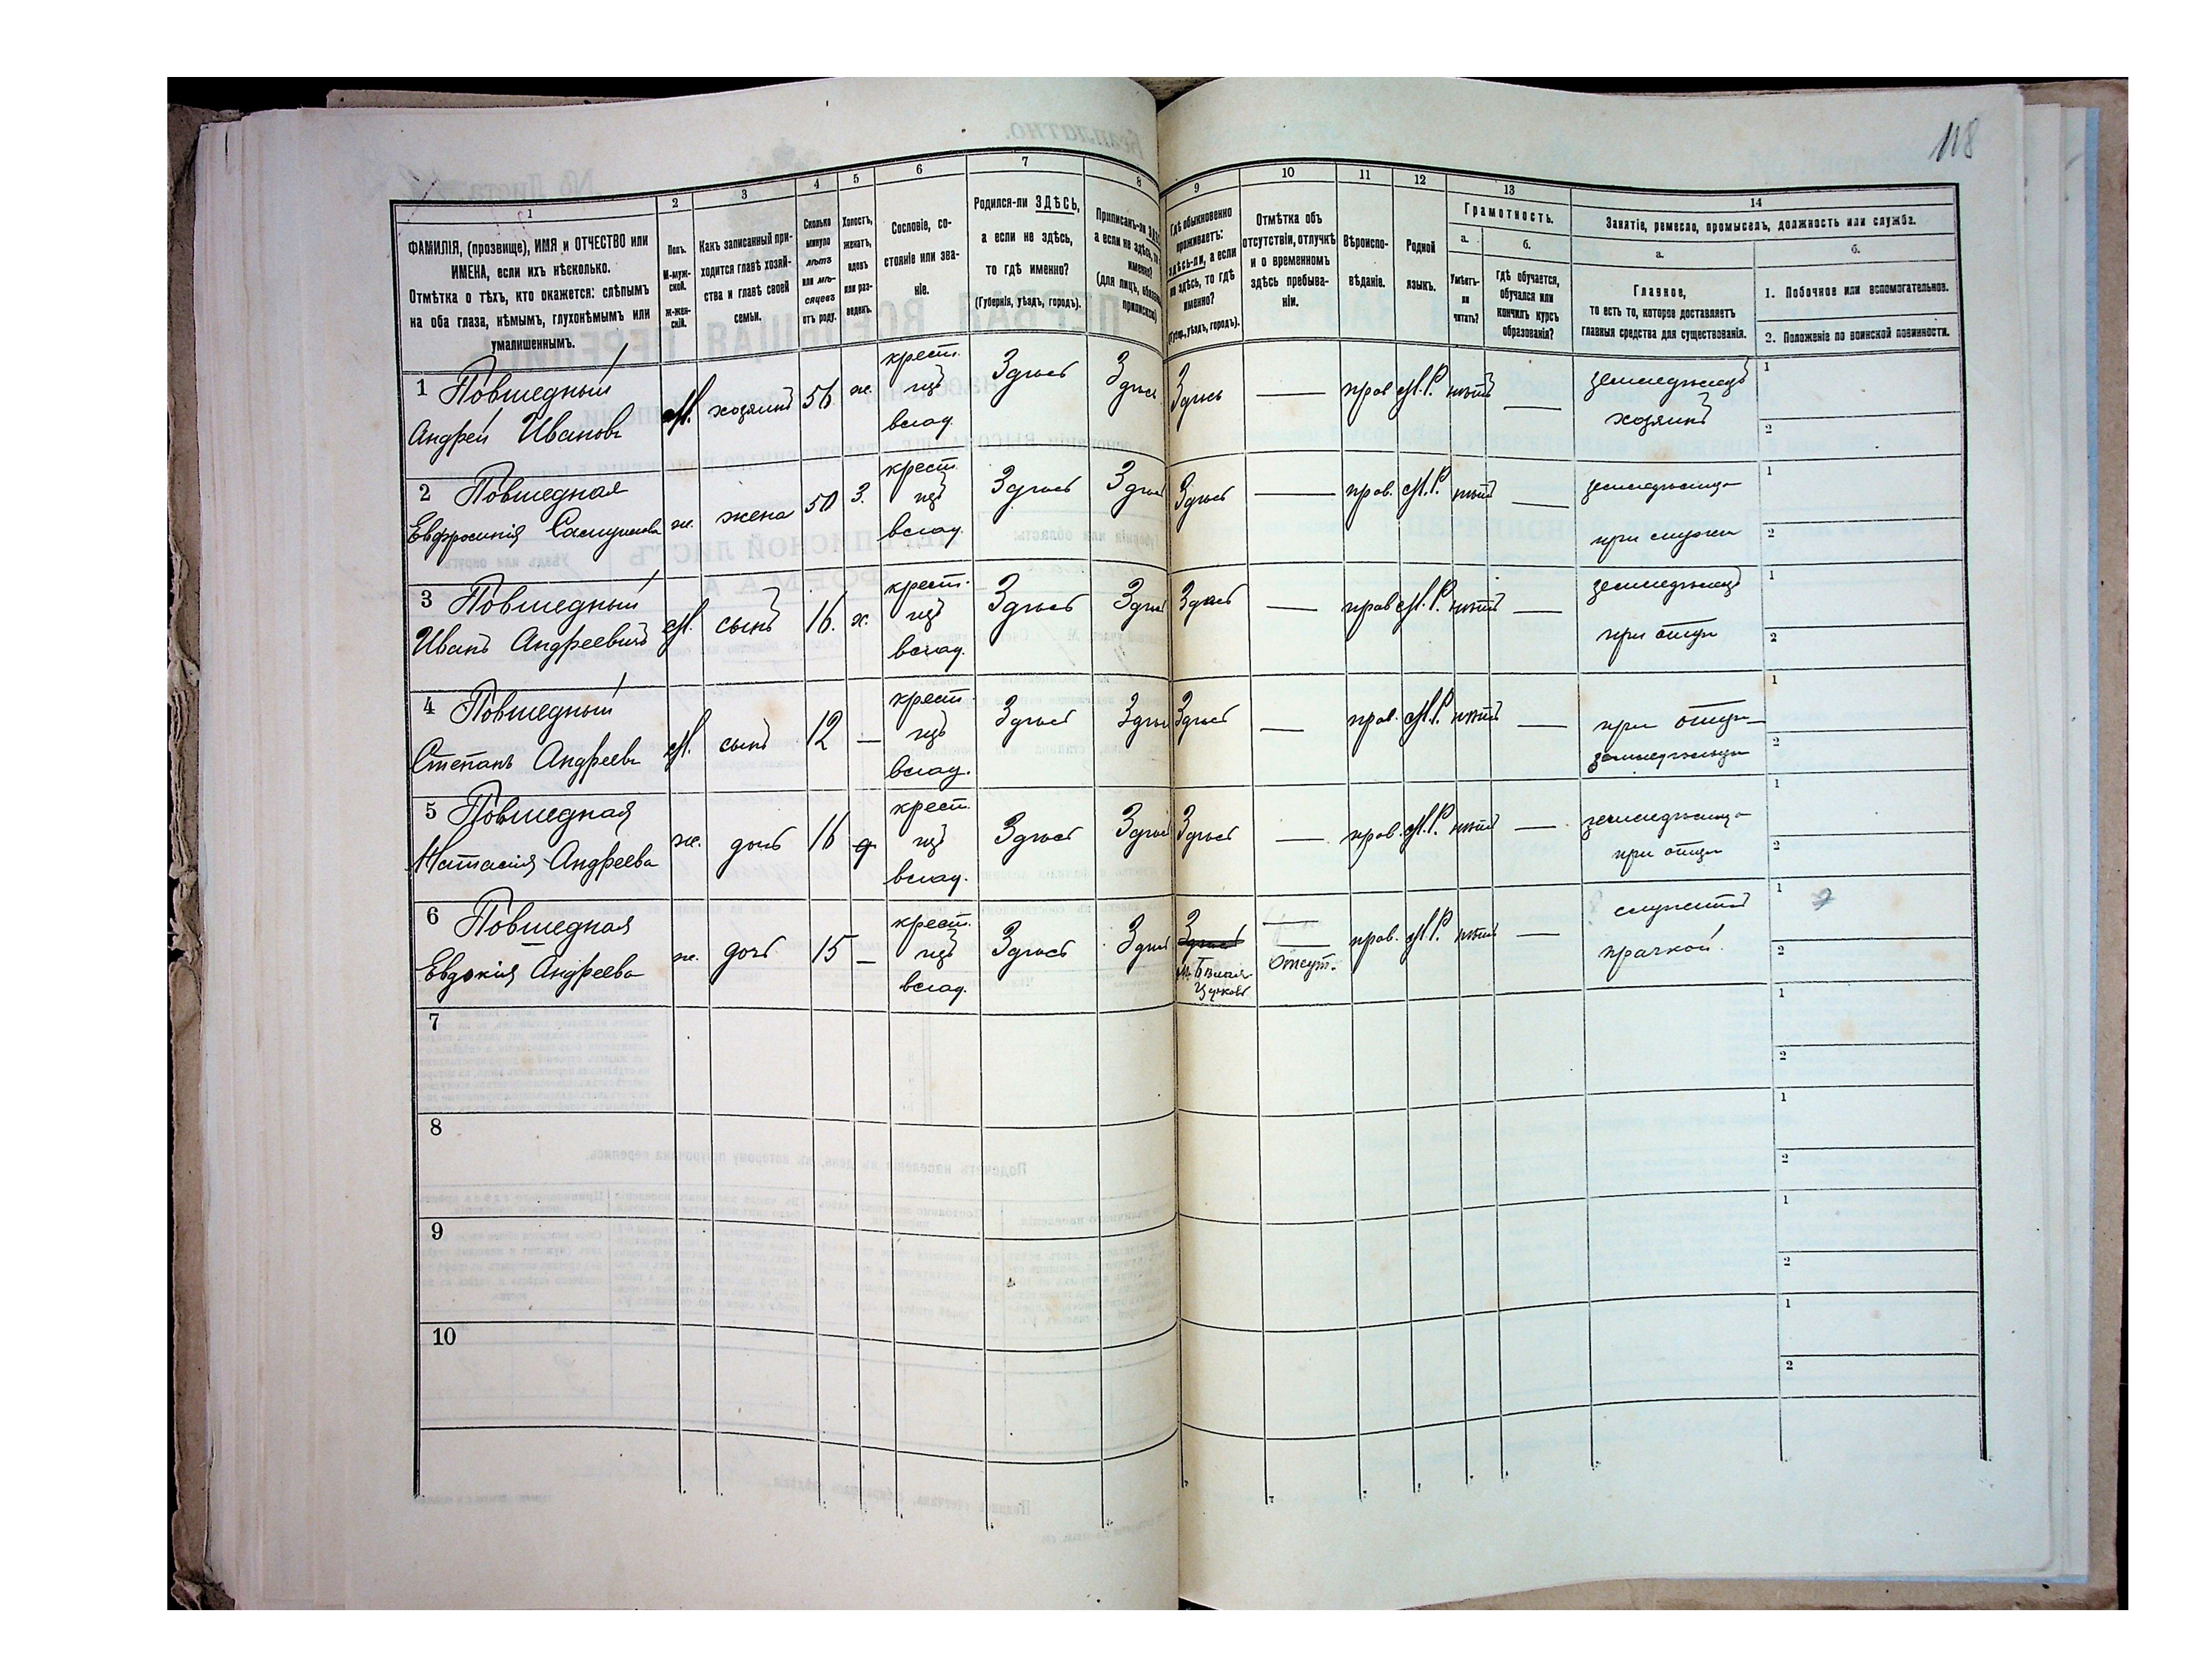 118
1
2
3
4
5
6
7
8
9
10
11
12
13
14
ФАМИЛІЯ, (прозвище), ИМЯ и ОТЧЕСТВО или
ИМЕНА, если ихъ нѣсколько.
Отмѣтка о тѣхъ, кто окажется: слѣпымъ
на оба глаза, нѣмымъ, глухонѣмымъ или
умалишеннымъ.
Полъ.
М-муж-
ской.
Ж-жен-
скій.
Какъ записанный при-
ходится главѣ хозяй-
ства и главѣ своей
семьи.
Сколько
минуло
лѣтъ
или мѣ-
сяцевъ
отъ роду.
Холостъ,
женатъ,
вдовъ
или раз-
веденъ.
Сословіе, со-
стояніе или зва-
ніе.
Родился-ли ЗДѢСЬ,
а если не здѣсь,
то гдѣ именно?
(Губернія, уѣздъ, городъ).
Приписанъ-ли
а если не здѣсь,
именно?
(для лицъ,
Гдѣ обыкновенно
проживаетъ:
здѣсь-ли, а если
не здѣсь, то гдѣ
именно?
(Губ., уѣздъ, городъ).
Отмѣтка объ
отсутствіи, отлучкѣ
и о временномъ
здѣсь пребыва-
ніи.
Вѣроиспо-
вѣданіе.
Родной
языкъ.
Грамотность.
а.
Умѣетъ-
ли
читать?
б.
гдѣ обучается,
обучался или
кончилъ курсъ
образованія?
Занятіе, ремесло, промыселъ, должность или служба.
а.
Главное,
то есть то, которое доставляетъ
главныя средства для существованія.
б.
1. Побочное или вспомогательное.
2. Положеніе по воинской повинности.
1 Повшедный
Андрей Ивановъ
М. хозяинъ 56 ж. крест. изъ влад. Здѣсь Здѣсь Здѣсь — прав М.Р. нѣтъ — земледѣлецъ хозяинъ 1 2
2 Повшедная
Евфросинія
ж. жена 50 З. крест. изъ влад. Здѣсь Здѣсь Здѣсь — прав. М.Р. нѣтъ — 1 2
3 Повшедный
Иванъ Андреевичъ
М. сынъ 16. х. крест. изъ влад. Здѣсь Здѣсь Здѣсь — прав М.Р. нѣтъ — земледѣлецъ при отцѣ 1 2
4 Повшедный
Степанъ Андреевъ
М. сынъ 12 — крест. изъ влад. Здѣсь Здѣсь Здѣсь — прав. М.Р. нѣтъ — при отцѣ земледѣльцѣ 1 2
5 Повшедная
Натасія Андреева
ж. дочь 16 д. крест. изъ влад. Здѣсь Здѣсь Здѣсь — прав. М.Р. нѣтъ — земледѣлица при отцѣ 1 2
6 Повшедная
Евдокія Андреева
ж. дочь 15 — крест. изъ влад. Здѣсь Здѣсь Здѣсь м. Бѣлая Церковь — Отсут. прав. М.Р. нѣтъ — служитъ прачкой. 1 2
7 1 2
8 1 2
9 1 2
10 1 2